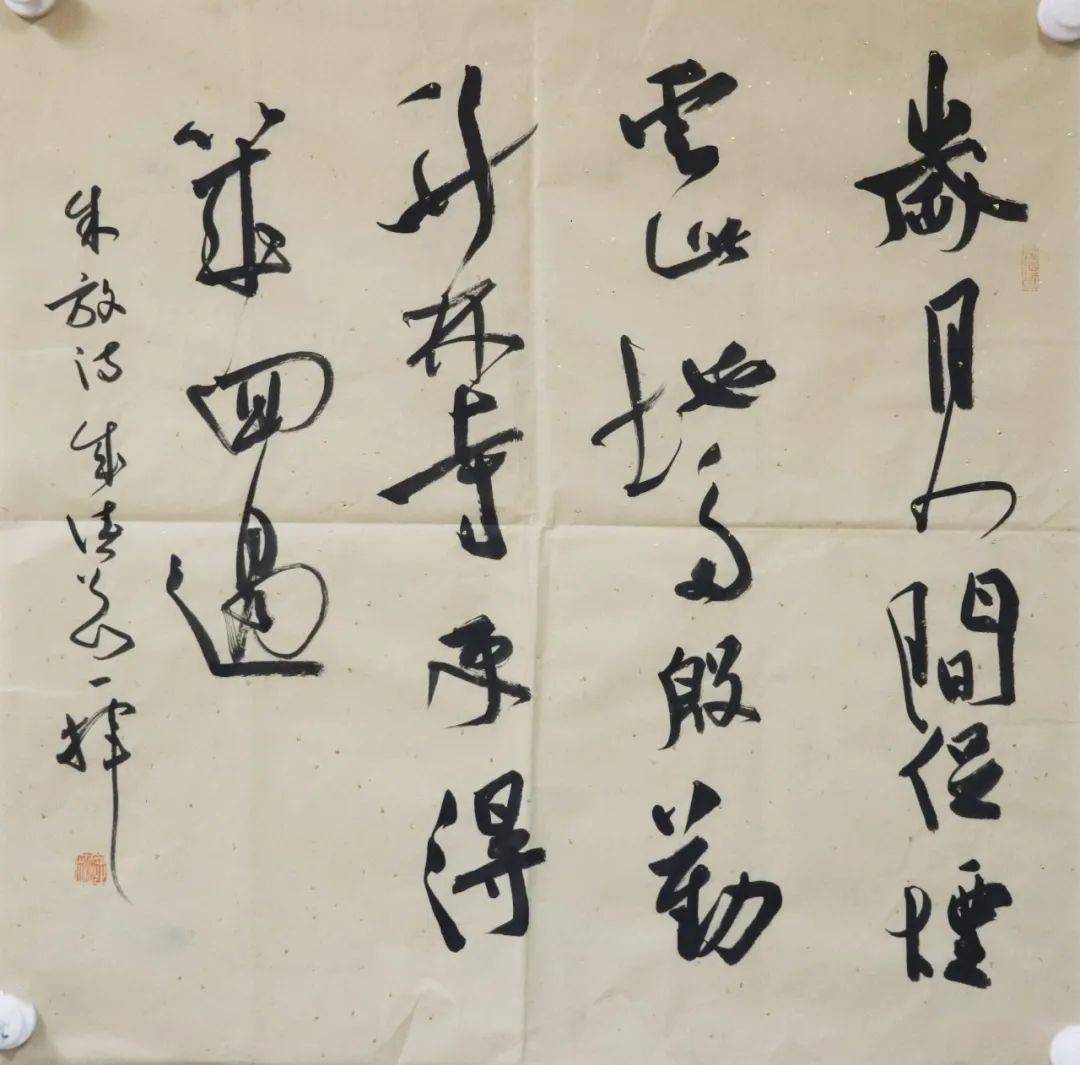 歲月人間促煙
雲此地多殷勤
竹林寺更得
幾回過
朱放诗